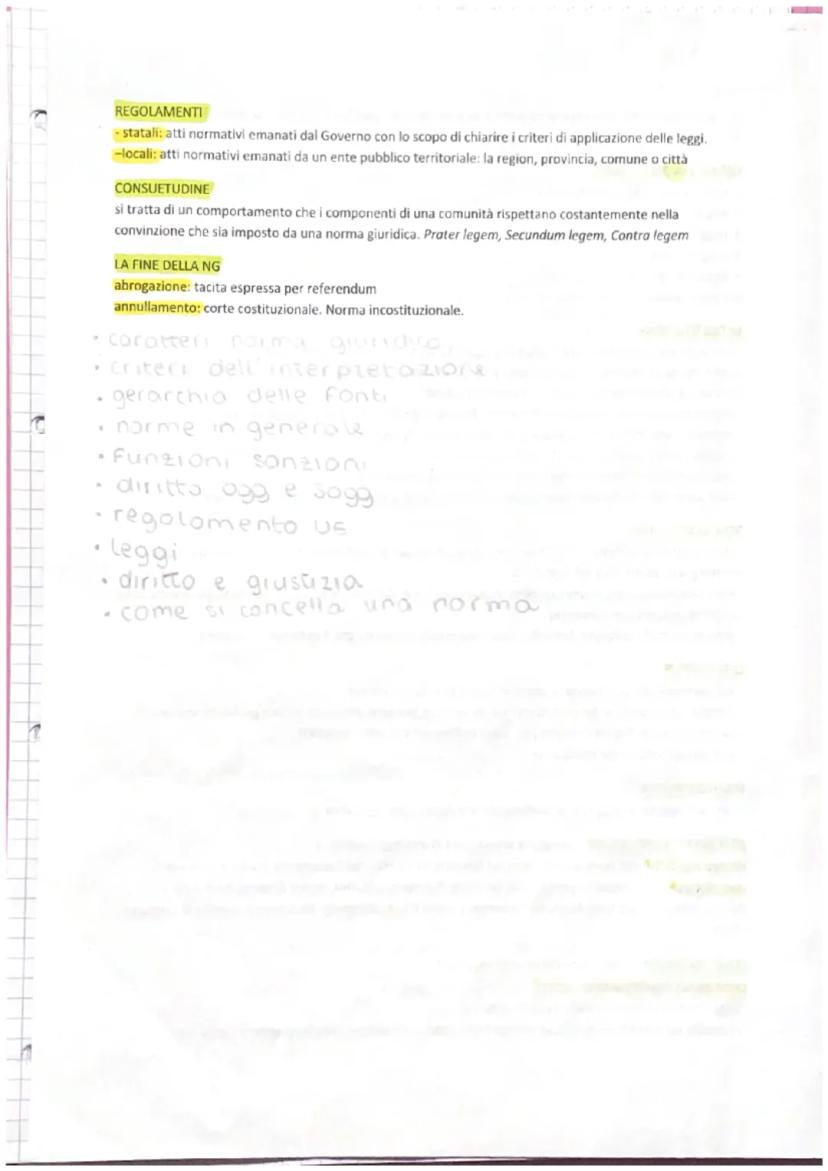 REGOLAMENTI
- statali: atti normativi emanati dal Governo con lo scopo di chiarire i criteri di applicazione delle leggi.
–locali: atti normativi emanati da un ente pubblico territoriale: la region, provincia, comune o città
CONSUETUDINE
si tratta di un comportamento che i componenti di una comunità rispettano costantemente nella
convinzione che sia imposto da una norma giuridica. Prater legem, Secundum legem, Contra legem
LA FINE DELLA NG
abrogazione: tacita espressa per referendum
annullamento: corte costituzionale. Norma incostituzionale.
• caratteri norma giuridica
• criteri dell'interpretazione
• gerarchia delle fonti
• norme in generale
• Funzioni sanzioni
• diritto ogg e sogg
• regolamento UE
• leggi
• diritto e giustizia
• come si cancella una norma